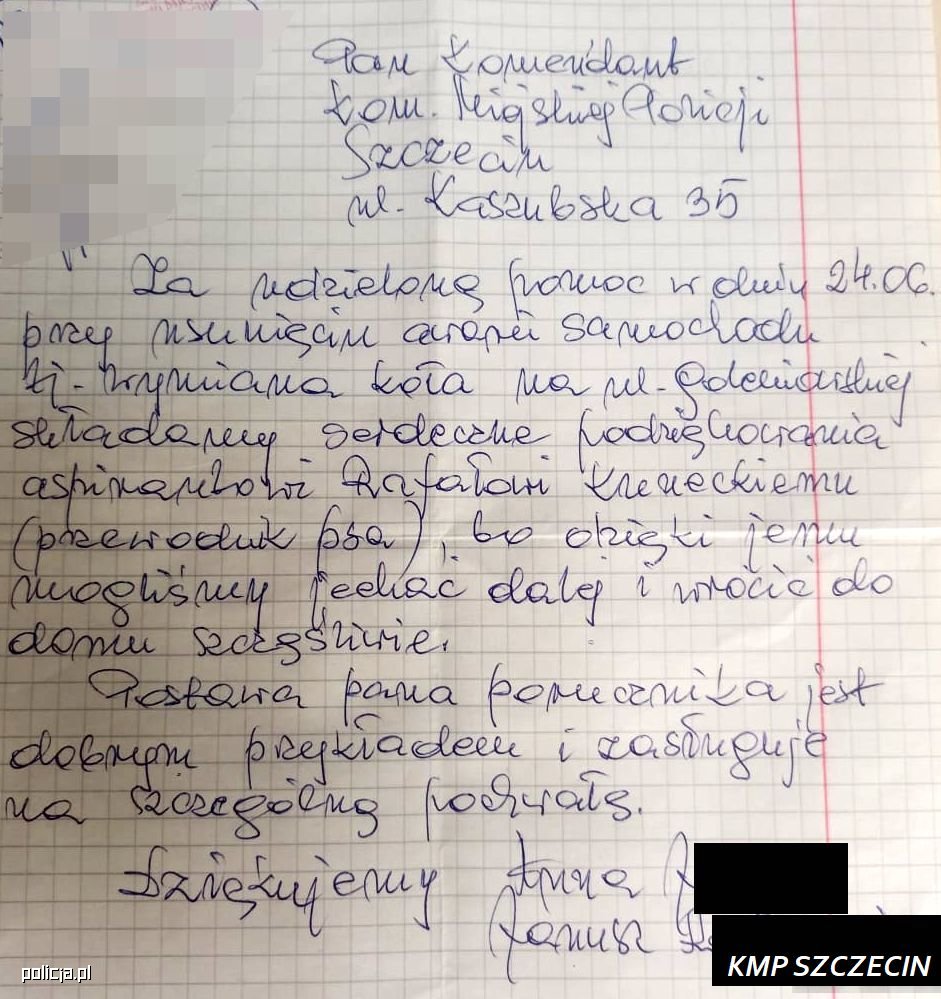 Pan Komendant
Kom. Miejskiej Policji
Szczecin
ul. Kaszubska 35
Za udzieloną pomoc w dniu 24.06.
przy usunięciu awarii samochodu
tj. wymiana koła na ul. Gdeńskiej
składamy serdeczne podziękowania
aspirantowi Rafałowi
(przewodnik psa), bo dzięki jemu
mogliśmy jechać dalej i wrócić do
domu szczęśliwie.
Postawa pana porucznika jest
dobrym przykładem i zasługuje
na szczególną pochwałę.
Dziękujemy Anna
Janusz
policja.pl
KMP SZCZECIN